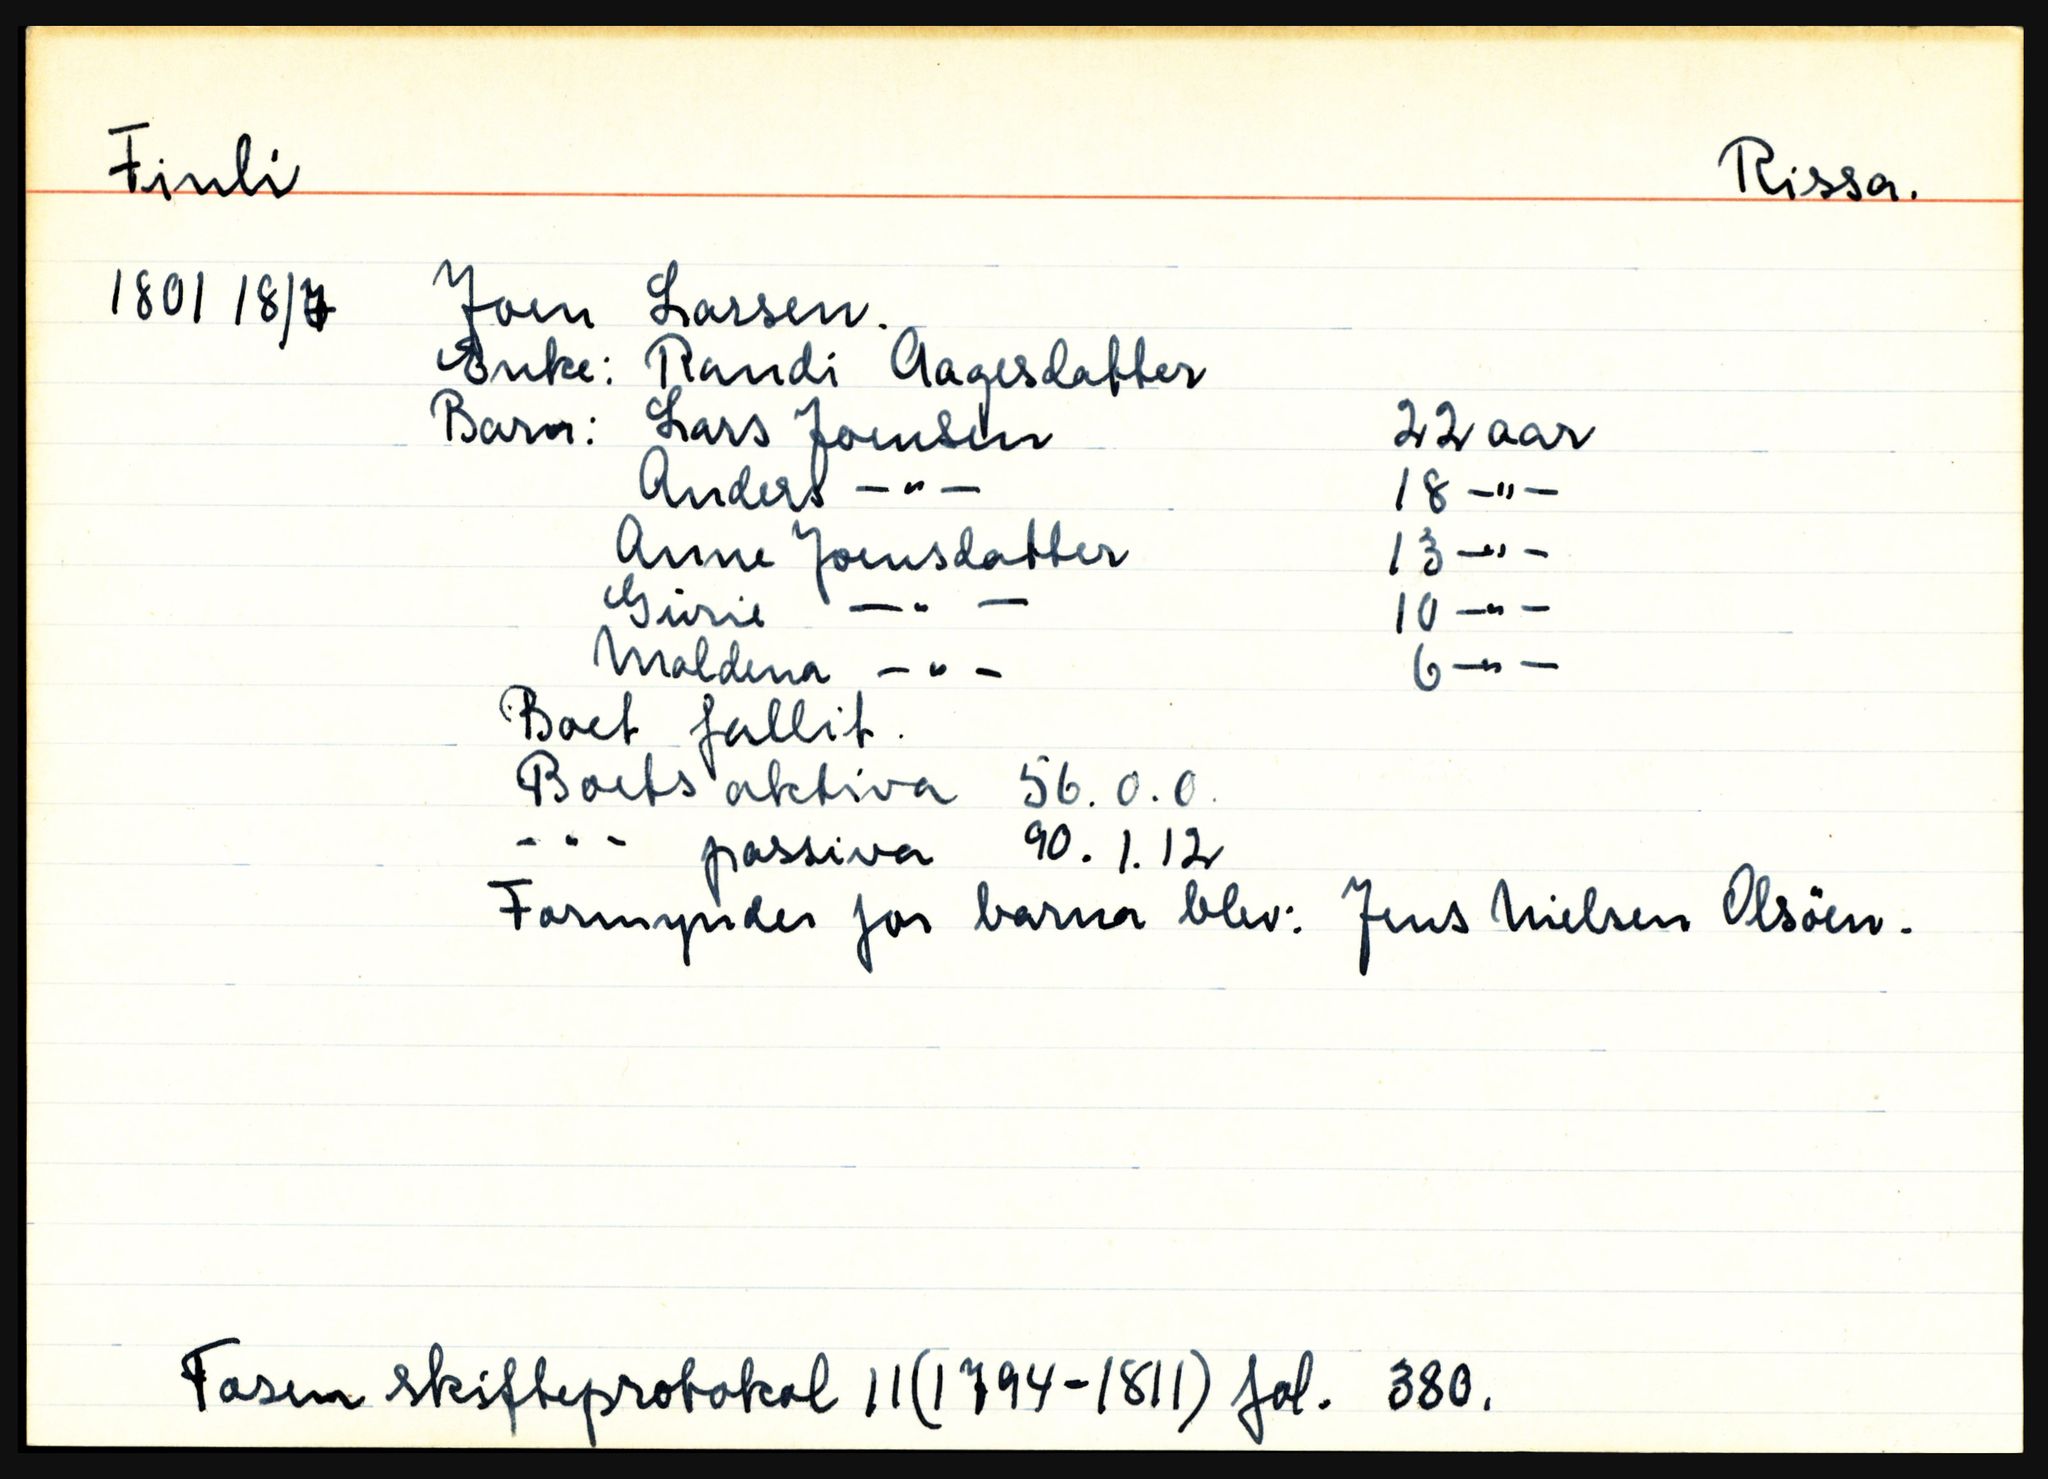 Finli Rissa.
1801 18/7 Joen Larsen.
Enke: Randi Aagesdatter
Barn: Lars Joensen 22 aar
Anders -"- 18 -"-
Anne Joensdatter 13 -"-
Gurie -"- 10 -"-
Maldena -"- 6 -"-
Boet fallit.
Boets aktiva 56.0.0.
-"- passiva 90.1.12
Formynder for barna blev: Jens Nielsen Olsöen.
Fosen skifteprotokol 11 (1794-1811) fol. 380.